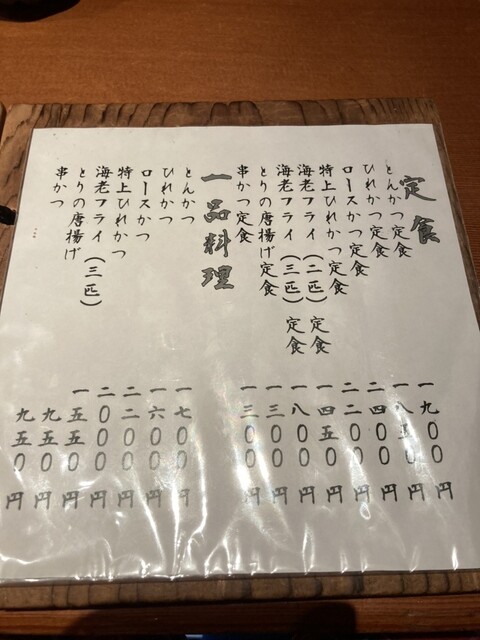 定食
とんかつ定食 一九〇〇円
ひれかつ定食 一八五〇円
ロースかつ定食 二四〇〇円
特上ひれかつ定食 二二〇〇円
海老フライ(二匹)定食 一四五〇円
海老フライ(三匹)定食 一八〇〇円
とりの唐揚げ定食 一三〇〇円
串かつ定食 一三〇〇円
一品料理
とんかつ 一七〇〇円
ひれかつ 一六〇〇円
ロースかつ 二二〇〇円
特上ひれかつ 二〇〇〇円
海老フライ(三匹) 一五五〇円
とりの唐揚げ 九五〇円
串かつ 九五〇円